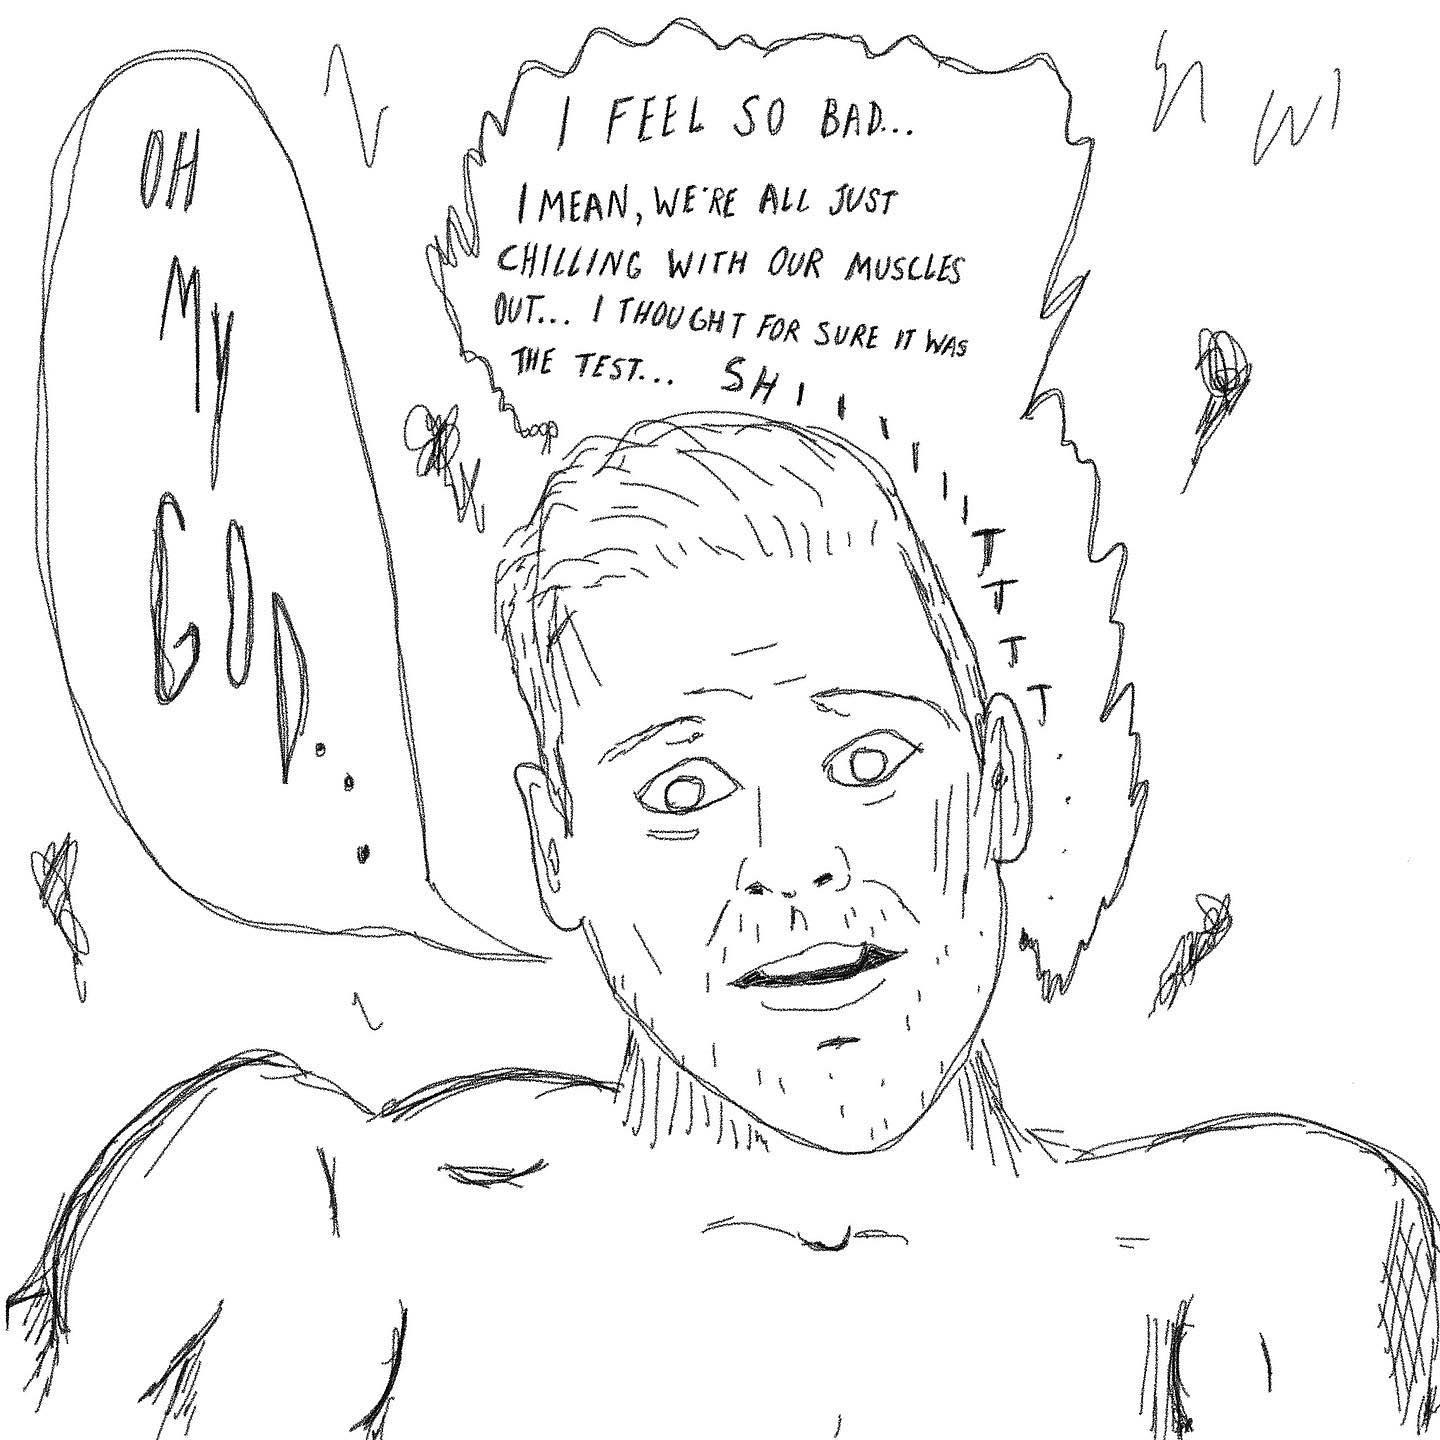 OH
MY
GOD...
I FEEL SO BAD...
I MEAN, WE'RE ALL JUST
CHILLING WITH OUR MUSCLES
OUT... I THOUGHT FOR SURE IT WAS
THE TEST... SHIIIIIIITTTT....